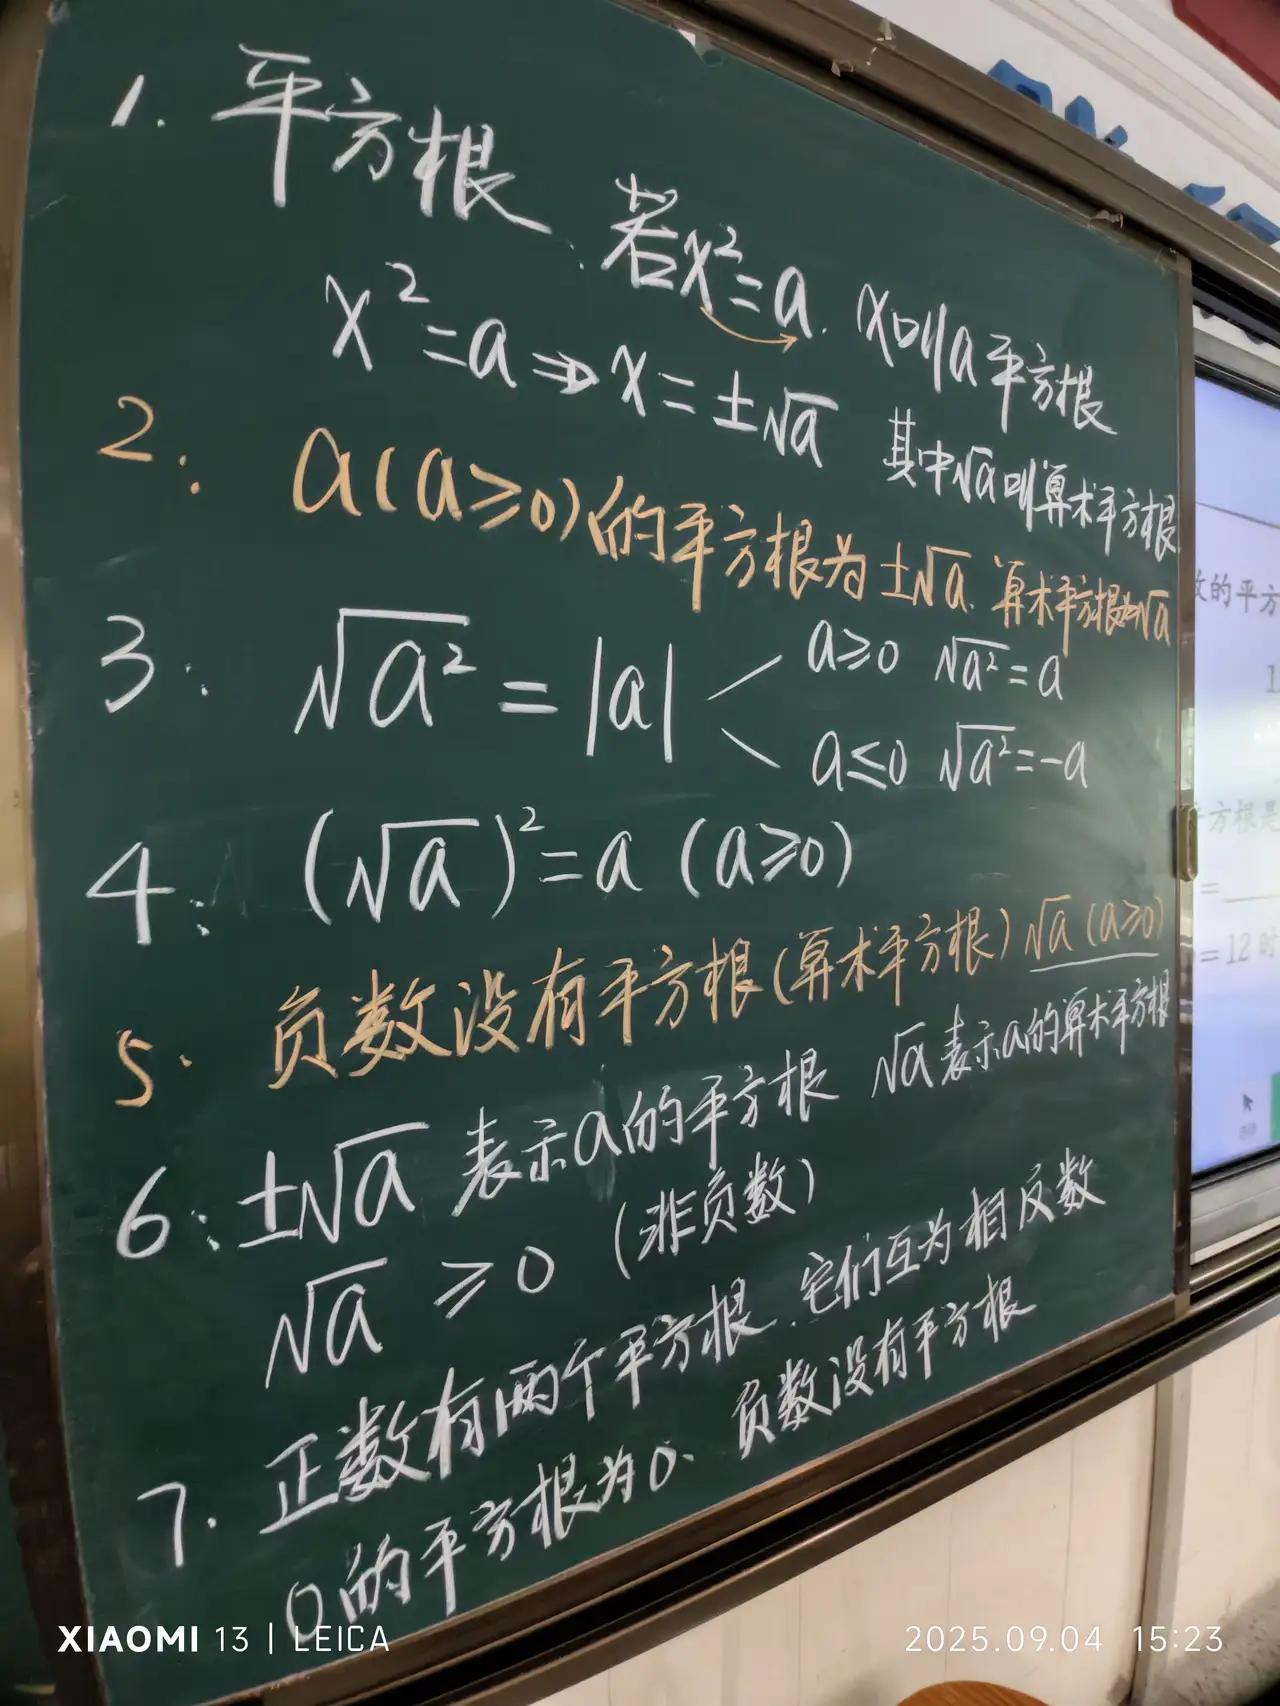 1. 平方根. 若x²=a. x叫a平方根
x²=a⇒x=±√a 其中√a叫算术平方根
2. a(a≥0)的平方根为±√a. 算术平方根为√a
3. √a²=|a| a≥0 √a²=a
a≤0 √a²=-a
4. (√a)²=a (a≥0)
5. 负数没有平方根(算术平方根) √a (a≥0)
6. ±√a 表示a的平方根 √a 表示a的算术平方根
√a ≥0 (非负数)
7. 正数有两个平方根. 它们互为相反数
0的平方根为0. 负数没有平方根
的平方
方根是
=
=12时
XIAOMI 13 | LEICA
2025.09.04 15:23